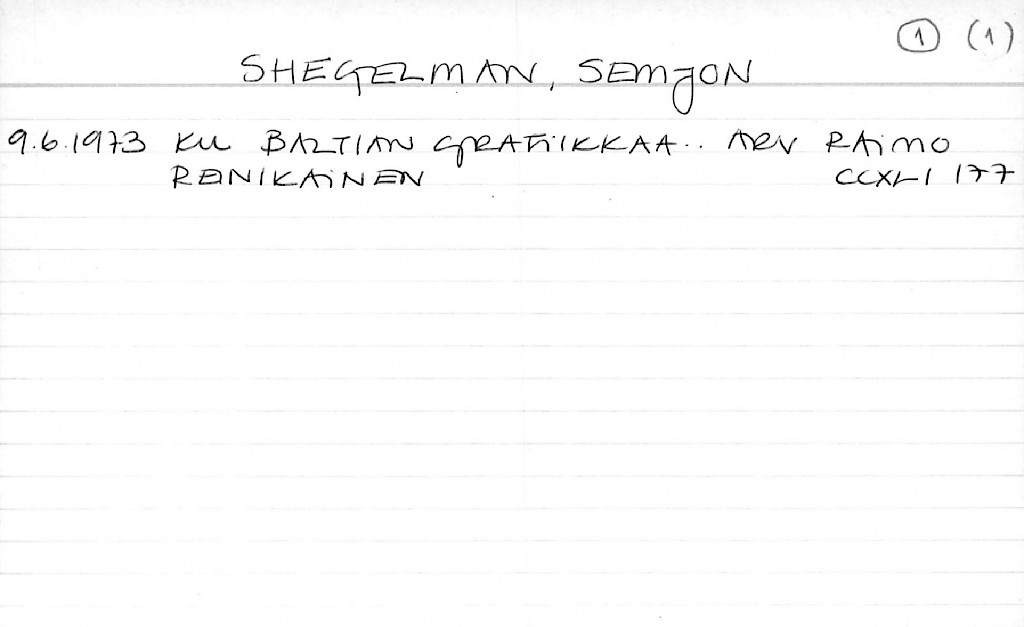 1 (1)
SHEGELMAN, SEMJON
9.6.1973 KU BALTIAN GRAFIIKKAA.. ARV RAIMO
REINIKAINEN CCXLI 177